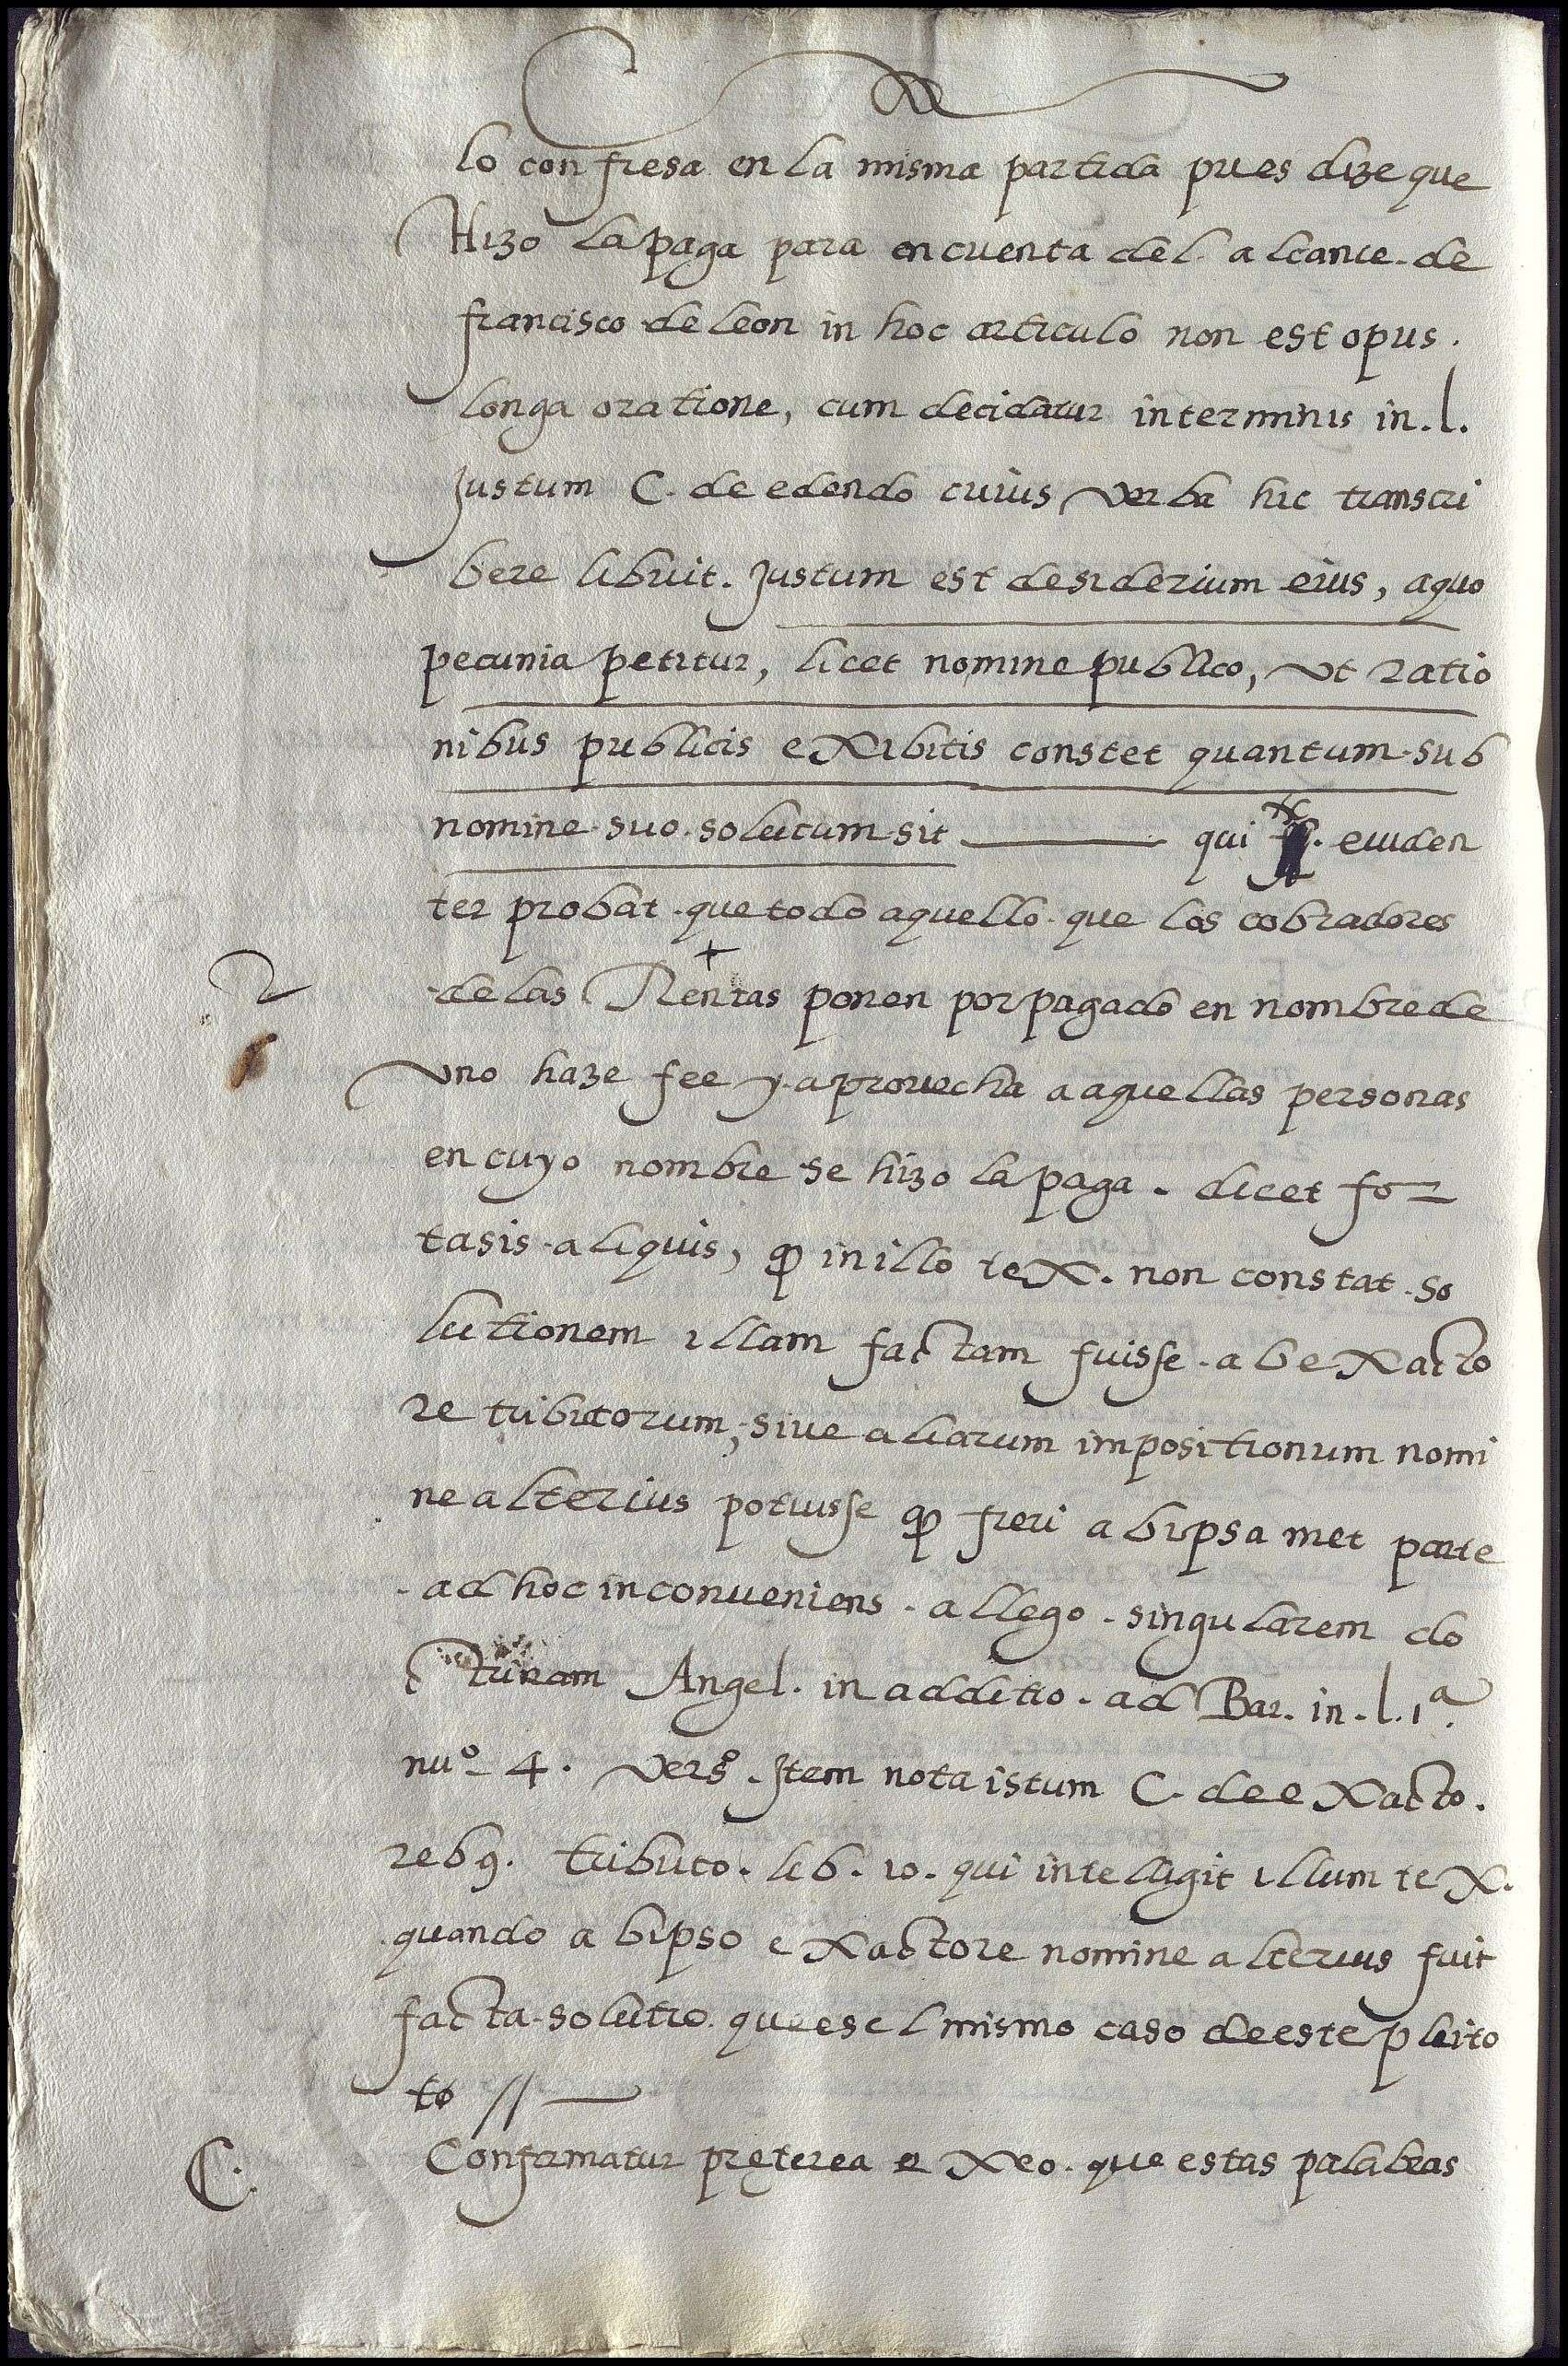 lo confiesa en la misma partida pues dize que
Hizo la paga para en cuenta del alcance de
francisco de leon in hoc articulo non est opus.
longa oratione, cum decidatur in terminis in. l.
Justum C. de edendo cuius verba hic transcri
bere libuit. Justum est desiderium eius, a quo
pecunia petitur, licet nomine publico, vt ratio
nibus publicis exibitis constet quantum sub
nomine suo solutum sit ——— qui euiden
ter probat que todo aquello que los cobradores
de las Rentas ponen por pagado en nombre de
vno haze fee y aprouecha a aquellas personas
en cuyo nombre se hizo la paga. dicet for
tasis aliquis, qp in illo tex. non constat so
lutionem illam factam fuisse ab exacto
re tributorum, siue aliarum impositionum nomi
ne alterius potuisse qp fieri ab ipsa met parte
ad hoc inconueniens allego singularem do
ctrinam Angel. in additio. ad Bar. in. l. 1ª.
nuº 4. versº. Item nota istum C. de exacto.
reb9. tributo. lib. 10. qui intelligit illum tex.
quando ab ipso exactore nomine alterius fuit
facta solutio que es el mismo caso de este pleito
to //—
C. Confirmatur pręterea ex eo. que estas palabras